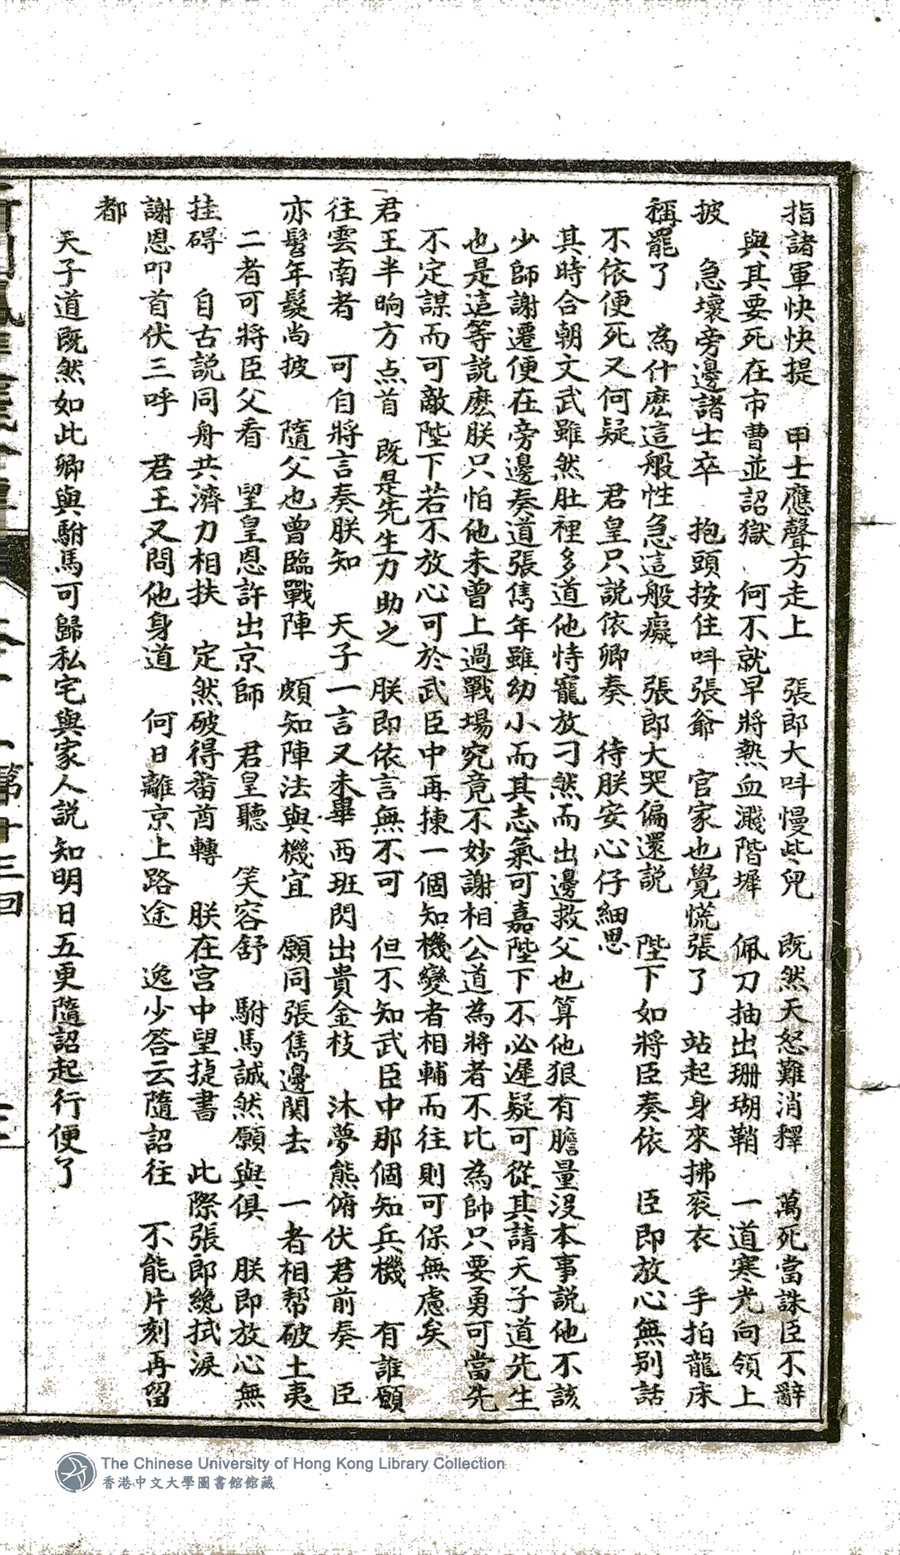 指諸軍快快提　甲士應聲方走上　張郎大呌慢此兒　既然天怒難消釋　萬死當誅臣不辭
與其要死在市曹並詔獄　何不就早將熱血濺階墀　佩刀抽出珊瑚鞘　一道寒光向領上
披　急壞旁邊諸士卒　抱頭按住呌張爺　官家也覺慌張了　站起身來拂袞衣　手拍龍床
稱罷了　為什麽這般性急這般癡　張郎大哭偏還説　陛下如將臣奏依　臣即放心無別話
不依便死又何疑　君皇只説依卿奏　待朕安心仔細思
其時合朝文武雖然肚裡多道他恃寵放刁然而出邊救父也算他狠有膽量沒本事説他不該
少師謝遷便在旁邊奏道張雋年雖幼小而其志氣可嘉陛下不必遲疑可從其請天子道先生
也是這等説麽朕只怕他未曾上過戰場究竟不妙謝相公道為將者不比為帥只要勇可當先
不定謀而可敵陛下若不放心可於武臣中再揀一個知機變者相輔而往則可保無慮矣
君王半晌方点首　既是先生力助之　朕即依言無不可　但不知武臣中那個知兵機　有誰願
往雲南者　可自將言奏朕知　天子一言又未畢　西班閃出貴金枝　沐夢熊俯伏君前奏　臣
亦髫年髮尚披　隨父也曾臨戰陣　頗知陣法與機宜　願同張雋邊関去　一者相帮破土夷
二者可將臣父看　望皇恩許出京師　君皇聽　笑容舒　駙馬誠然願與俱　朕即放心無
挂碍　自古説同舟共濟力相扶　定然破得畨酋轉　朕在宮中望捷書　此際張郎纔拭淚
謝恩叩首伏三呼　君王又問他身道　何日離京上路途　逸少答云隨詔往　不能片刻再留
都
天子道既然如此卿與駙馬可歸私宅與家人説知明日五更隨詔起行便了
第十三回
The Chinese University of Hong Kong Library Collection
香港中文大學圖書館館藏